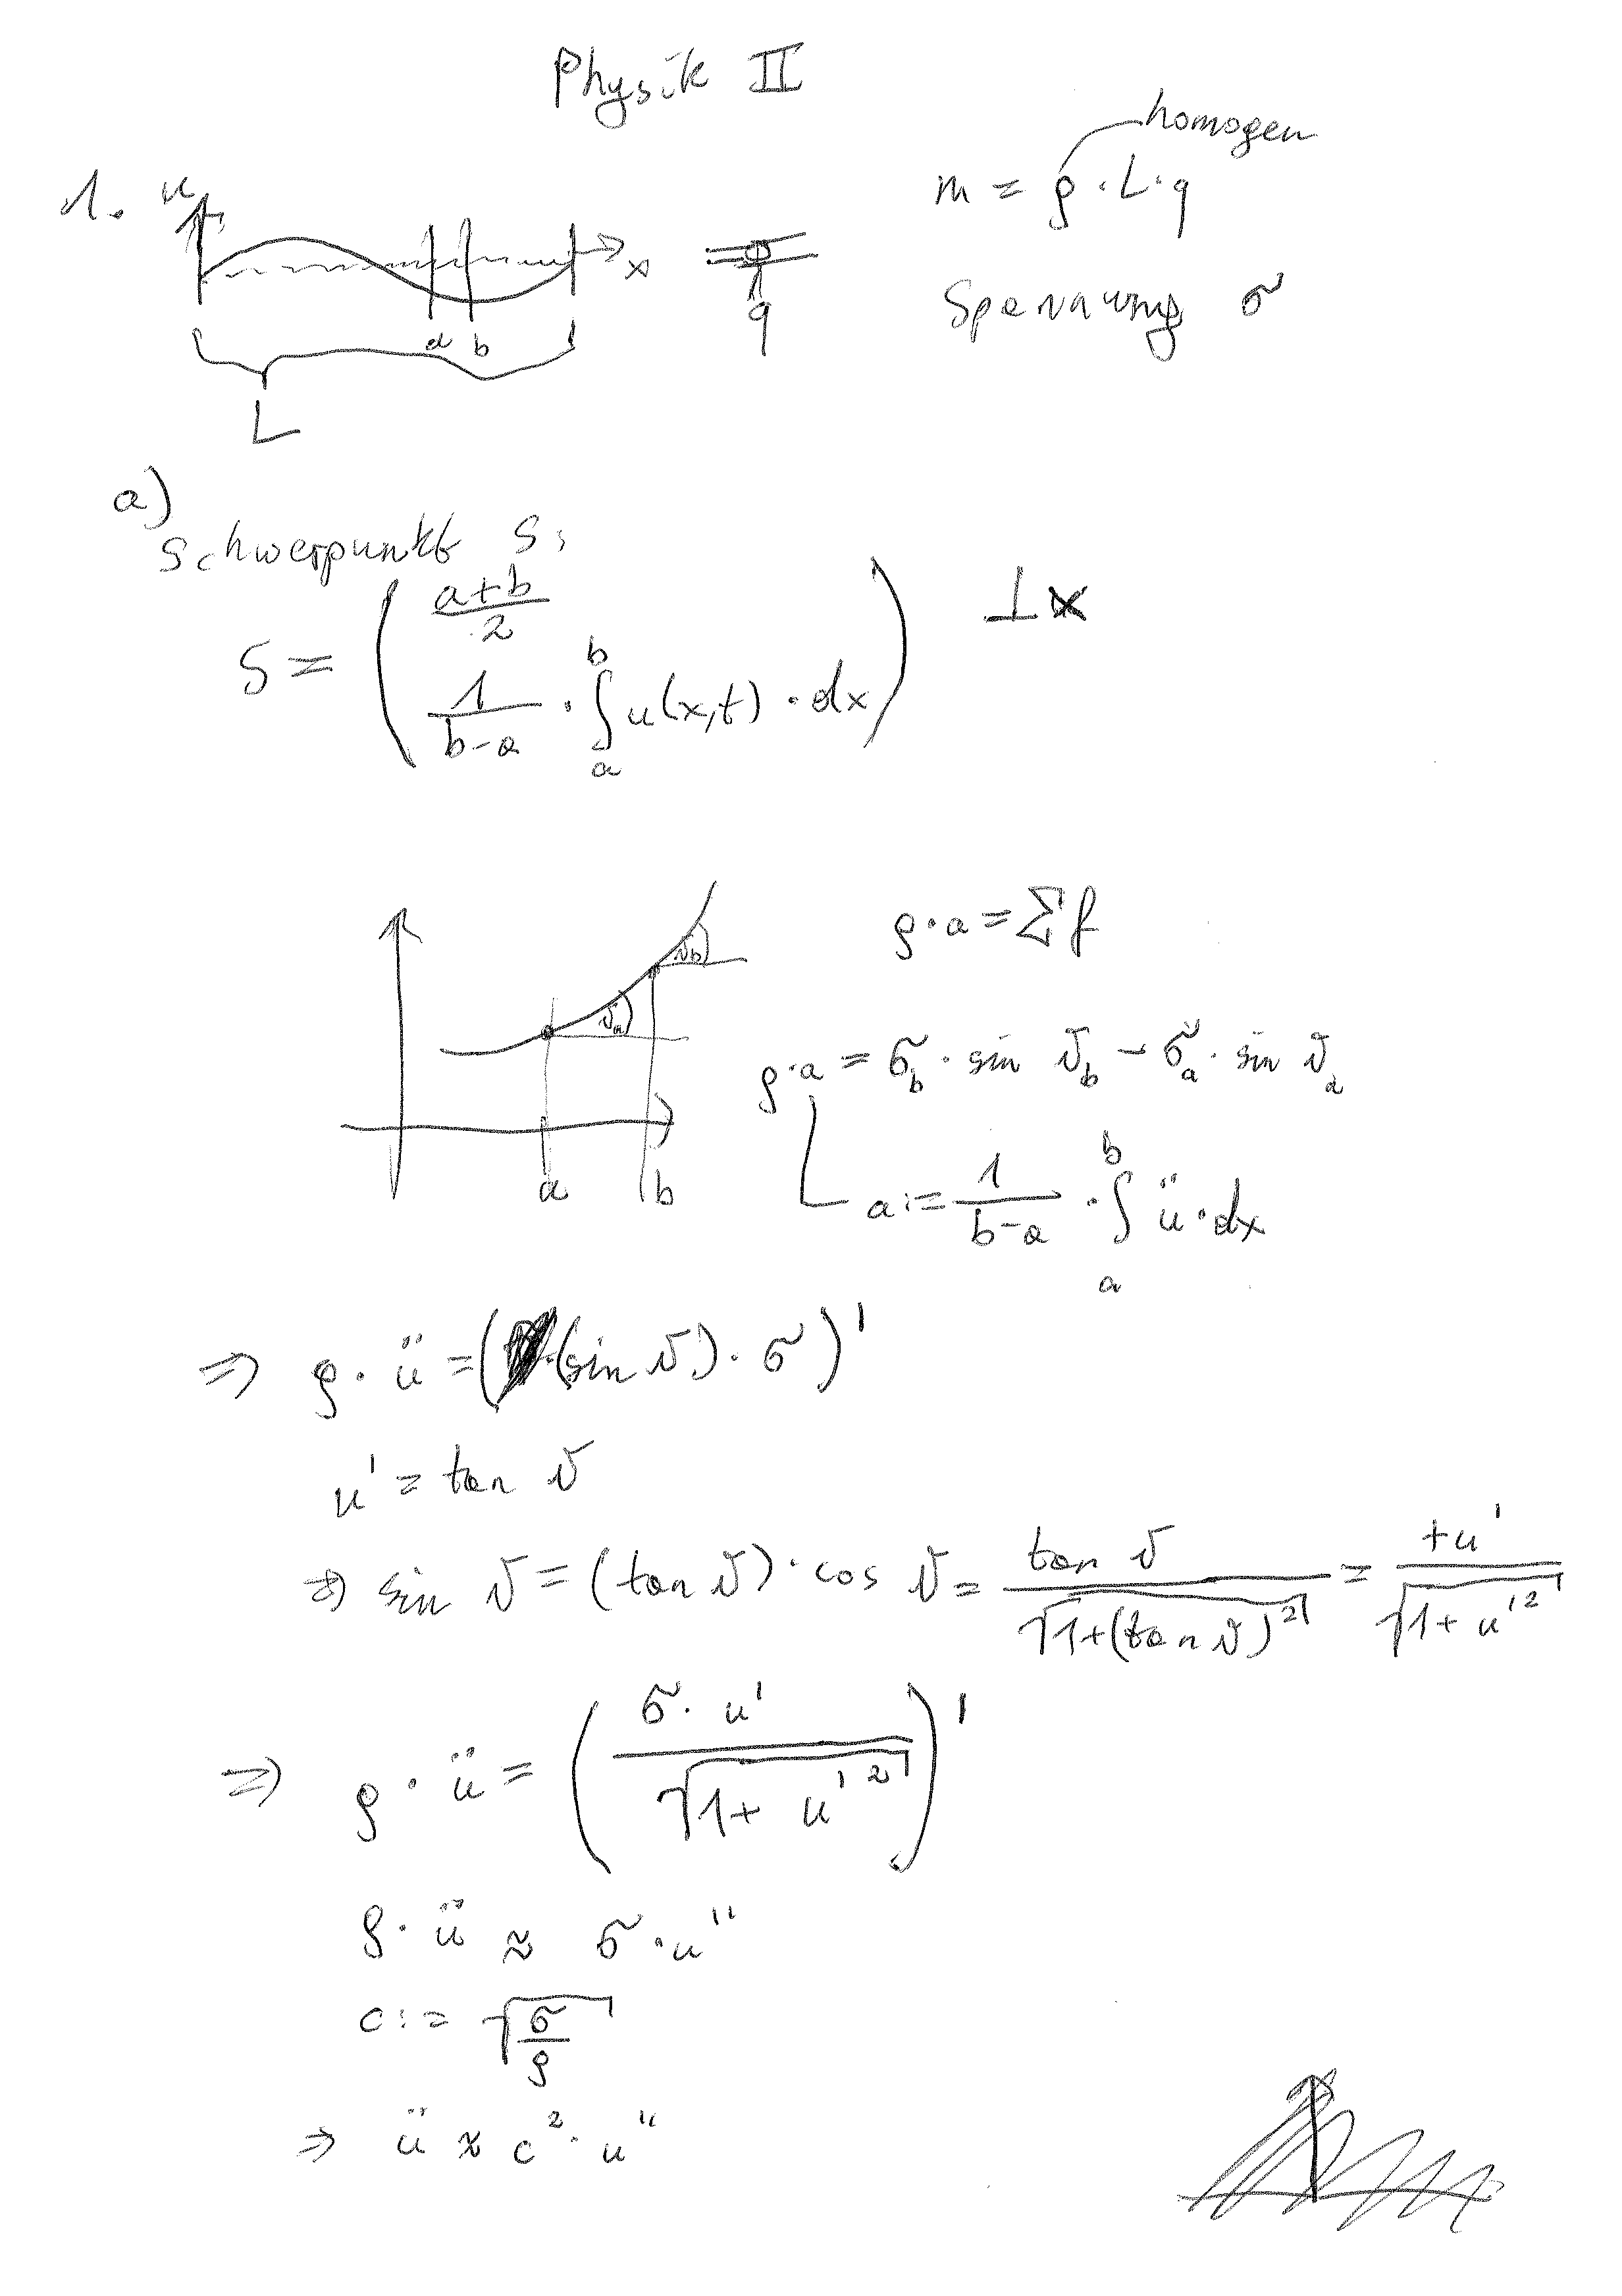 Physik II
homogen
1. u
m = ρ · L · q
x
Spannung σ
q
a b
L
a)
Schwerpunkt S:
S = ( (a+b)/2 ; 1/(b-a) · ∫_a^b u(x,t) · dx ) ⊥ x
ρ · a = Σ f
ϑ_b
ϑ_a
ρ · a = σ_b · sin ϑ_b - σ_a · sin ϑ_a
a b
a := 1/(b-a) · ∫_a^b ü · dx
⇒ ρ · ü = ((sin ϑ) · σ)'
u' = tan ϑ
⇒ sin ϑ = (tan ϑ) · cos ϑ = tan ϑ / √(1+(tan ϑ)²) = +u' / √(1+u'²)
⇒ ρ · ü = ( σ · u' / √(1+u'²) )'
ρ · ü ≈ σ · u''
c := √(σ/ρ)
⇒ ü ≈ c² · u''